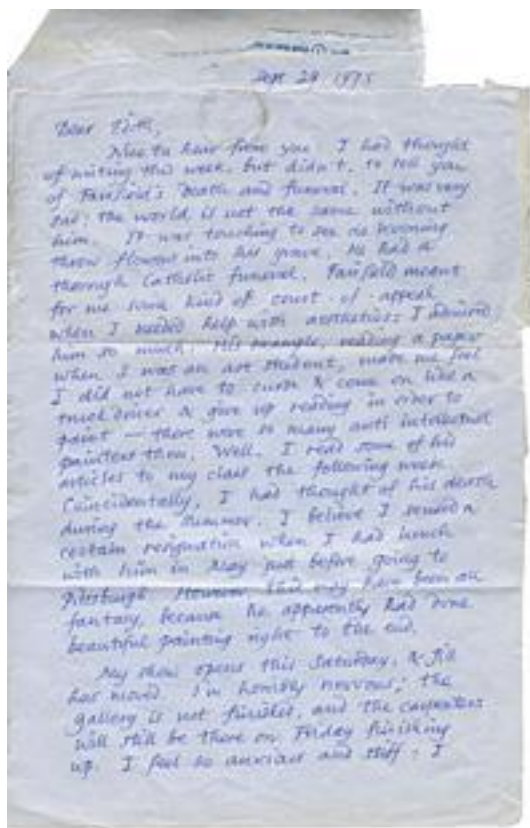 Sept 29 1975
Dear Edith,
Nice to hear from you. I had thought
of writing this week, but didn't, to tell you
of Fairfield's death and funeral. It was very
sad; the world is not the same without
him. It was touching to see de Kooning
throw flowers into his grave. He had a
thorough Catholic funeral. Fairfield meant
for me some kind of court of appeal
when I needed help with aesthetics; I admired
him so much. His example, reading a paper
when I was an art student, made me feel
I did not have to curse & come on like a
truck driver & give up reading in order to
paint — there were so many anti intellectual
painters then. Well. I read some of his
articles to my class the following week.
Coincidentally, I had thought of his death
during the summer. I believe I sensed a
certain resignation when I had lunch
with him in May just before going to
Pittsburgh. However this may have been all
fantasy, because he apparently had done
beautiful painting right to the end.
My show opens this Saturday, & Jill
has moved. I'm horribly nervous; the
gallery is not finished, and the carpenters
will still be there on Friday finishing
up. I feel so anxious and stiff. I